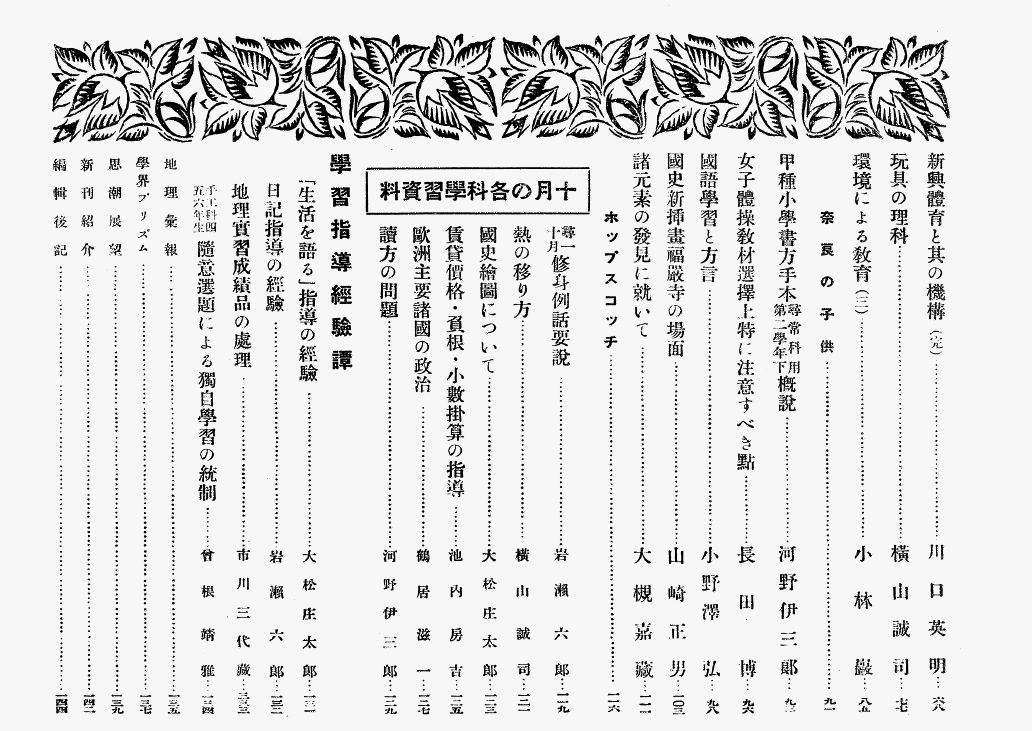 新興體育と其の機構（完）……川口英明……六八
玩具の理科……橫山誠司……七七
環境による敎育（三）……小林巖……八五
奈良の子供……九一
甲種小學書方手本尋常科用第二學年下槪說……河野伊三郞……九三
女子體操敎材選擇上特に注意すべき點……長田博……九六
國語學習と方言……小野澤弘……九八
國史新揷畫福嚴寺の場面……山崎正男……一〇三
諸元素の發見に就いて……大槻嘉藏……一一一
ホップスコッチ……一一六
十月の各科學習資料
尋一十月修身例話要說……岩瀨六郞……一一九
熱の移り方……橫山誠司……一二一
國史繪圖について……大松庄太郞……一二三
賃貸價格・負根・小數掛算の指導……池內房吉……一二五
歐洲主要諸國の政治……鶴居滋一……一二七
讀方の問題……河野伊三郞……一二九
學習指導經驗譚
「生活を語る」指導の經驗……大松庄太郞……一三一
日記指導の經驗……岩瀨六郞……一三二
地理實習成績品の處理……市川三代藏……一三三
手工科四五六年生隨意選題による獨自學習の統制……曾根靖雅……一三四
地理彙報……一三五
學界プリズム……一三七
思潮展望……一三九
新刊紹介……一四二
編輯後記……一四四